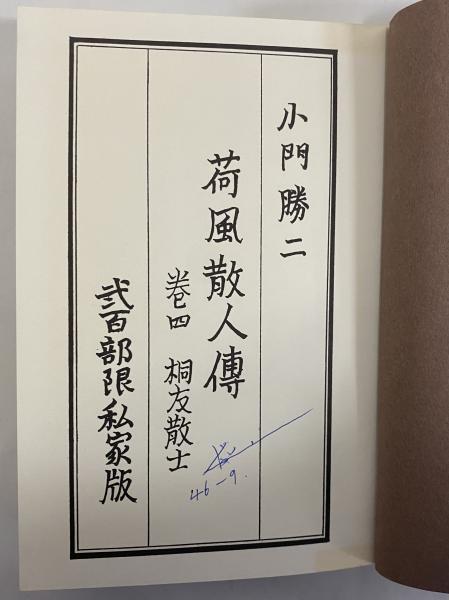 小門勝二
荷風散人傳
巻四 桐友散士
弐百部限私家版
46-9.